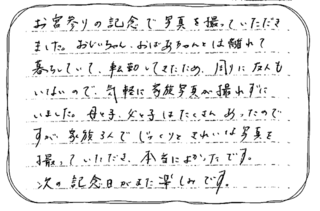 お宮参りの記念で写真を撮っていただき
ました。おじいちゃん、おばあちゃんとは離れて
暮らしていて、転勤してきたため、周りにだれも
いないので、気軽に家族写真が撮れずに
いました。母と子、父と子はたくさんあったので
すが、家族3人でじっくりときれいな写真を
撮っていただき、本当によかったです。
次の記念日がまた楽しみです。